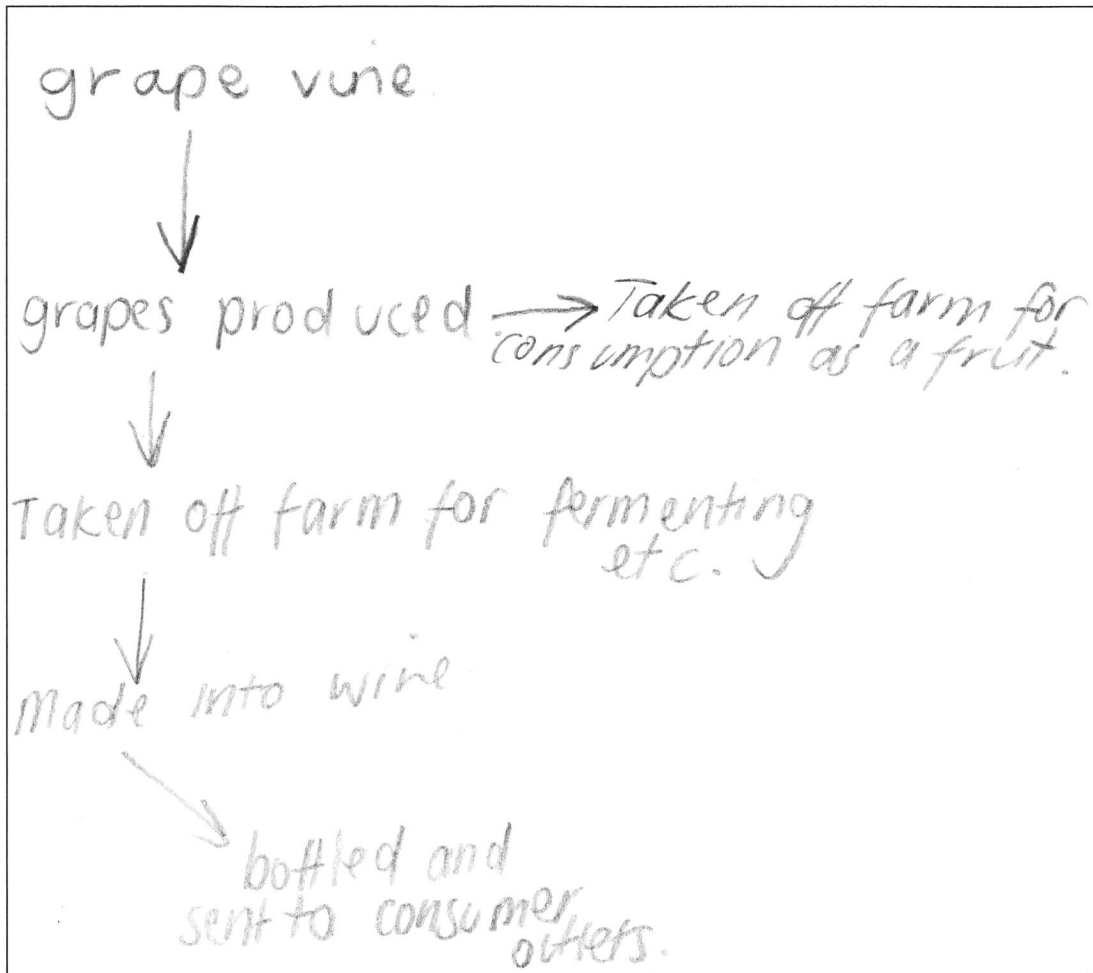 grape vine
grapes produced
Taken off farm for
consumption as a fruit.
Taken off farm for fermenting
etc.
Made into wine
bottled and
sent to consumer
outlets.